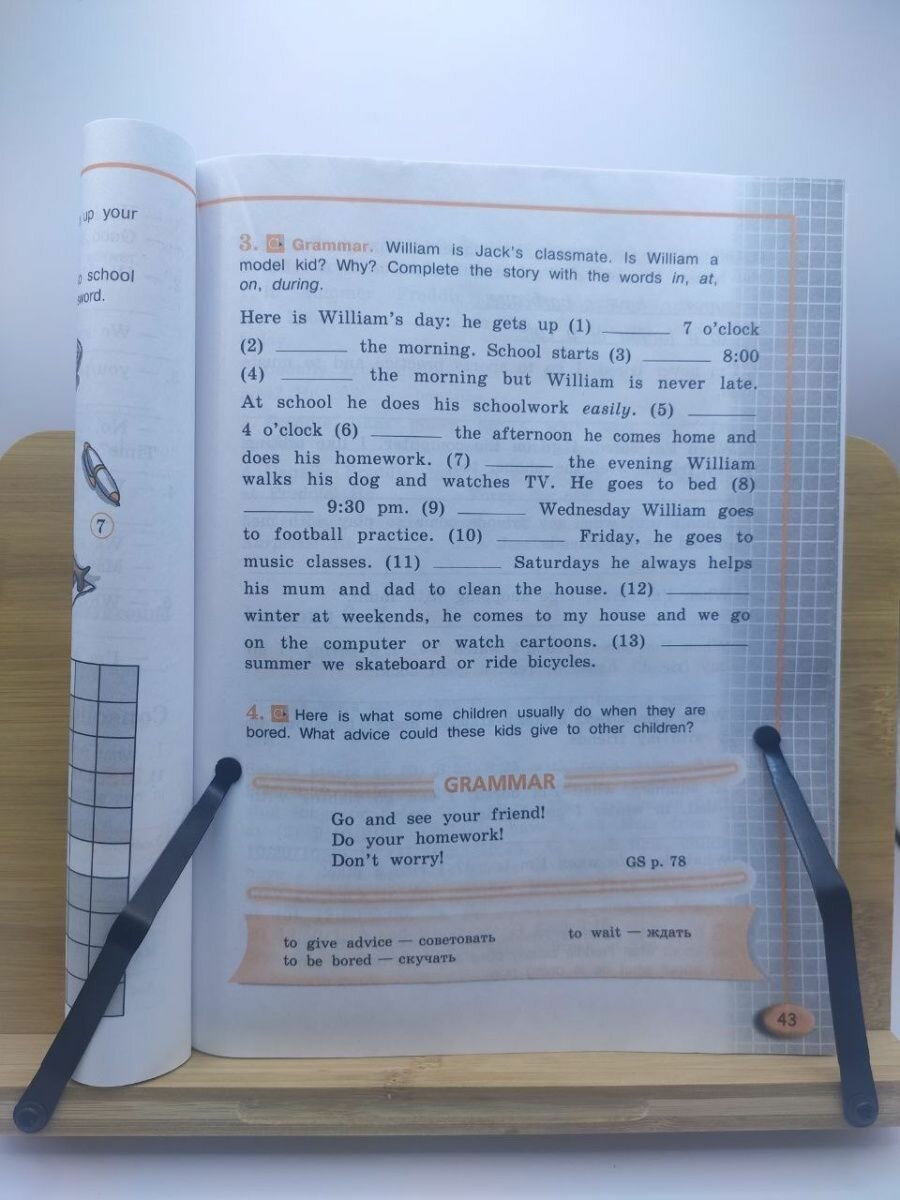 up your
school
sword.
7
3. Grammar. William is Jack's classmate. Is William a
model kid? Why? Complete the story with the words in, at,
on, during.
Here is William's day: he gets up (1) ______ 7 o'clock
(2) ______ the morning. School starts (3) ______ 8:00
(4) ______ the morning but William is never late.
At school he does his schoolwork easily. (5) ______
4 o'clock (6) ______ the afternoon he comes home and
does his homework. (7) ______ the evening William
walks his dog and watches TV. He goes to bed (8)
______ 9:30 pm. (9) ______ Wednesday William goes
to football practice. (10) ______ Friday, he goes to
music classes. (11) ______ Saturdays he always helps
his mum and dad to clean the house. (12) ______
winter at weekends, he comes to my house and we go
on the computer or watch cartoons. (13) ______
summer we skateboard or ride bicycles.
4. Here is what some children usually do when they are
bored. What advice could these kids give to other children?
GRAMMAR
Go and see your friend!
Do your homework!
Don't worry!
GS p. 78
to give advice — советовать
to be bored — скучать
to wait — ждать
43